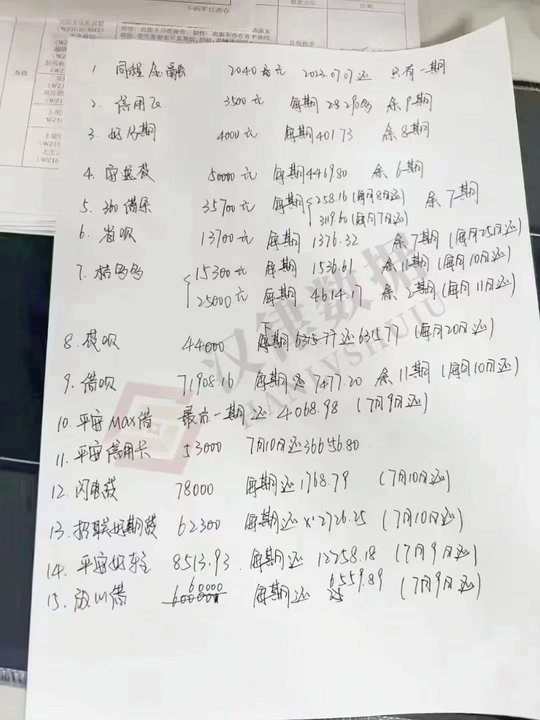 1 同程金融 2040元 2022.07.07还 只有一期
2. 信用飞 3500元 每期 余9期
3. 好分期 4000元 每期401.73 余8期
4. 50000元 每期4469.80 余6期
5. 360借条 35700元 每期 258.16 (每月8日还) 余7期
3119.60 (每月7日还)
6. 省呗 13700元 每期1376.32 余7期 (每月25日还)
7. 15300元 每期1536.61 余11期 (每月10日还)
25000元 每期4614.17 余 期 (每月11日还)
8. 花呗 44000 下期6315.77还6315.77 (每月20日还)
9. 借呗 71908.16 每期还7477.20 余11期 (每月10日还)
10. 平安MAX借 最后一期还4068.98 (7月9日还)
11. 平安信用卡 53000 7月10日还36656.80
12. 闪电贷 78000 每期还1768.79 (7月10日还)
13. 招联好期贷 62300 每期还 2726.25 (7月10日还)
14. 平安好车主 8513.93 每期还12758.18 (7月9日还)
15. 放心借 60000 每期还 6559.89 (7月9日还)
汉律数据
HANLVSHUJU